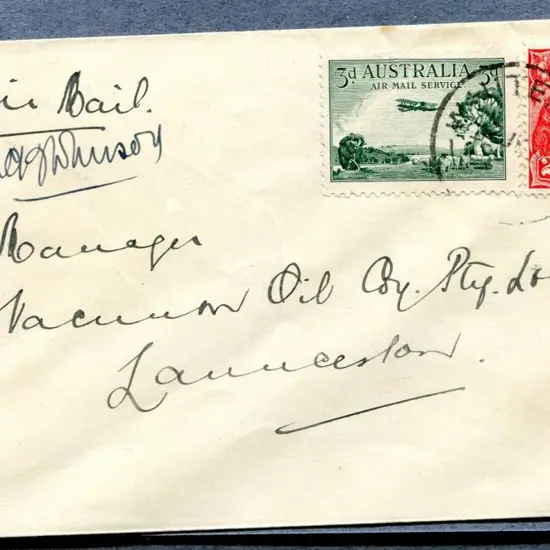 ir Mail.
Johnson
Manager
Vacuum Oil Coy. Pty. Ld
Launceston.
3d AUSTRALIA 3d
AIR MAIL SERVICE
2